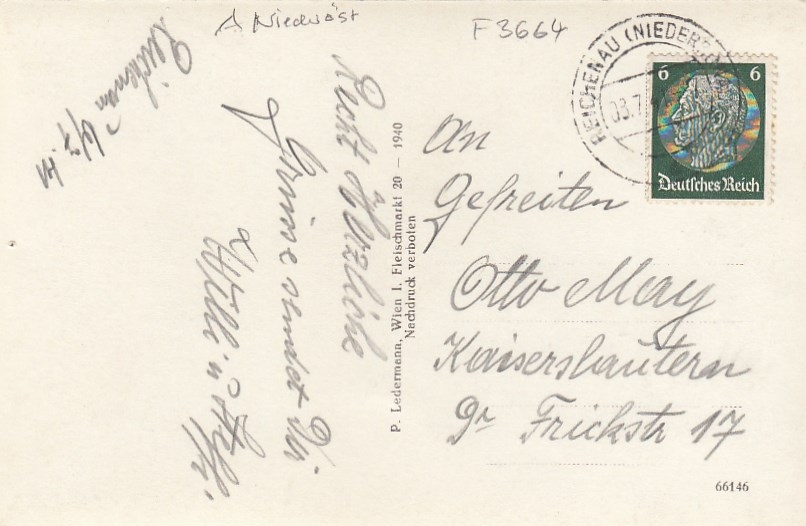 A Niederöst
F 3664
Reichenau
Recht Herzliche
Grüsse sendet Dir
Willi u Steffi
P. Ledermann, Wien I. Fleischmarkt 20 — 1940
Nachdruck verboten
REICHENAU (NIEDER
03.7.
6 6
Deutsches Reich
An
Gefreiten
Otto May
Kaiserslautern
Dr Frickstr 17
66146